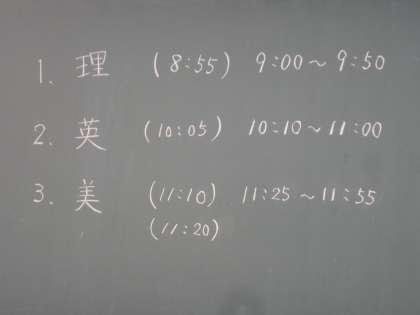 1. 理 (8:55) 9:00～9:50
2. 英 (10:05) 10:10～11:00
3. 美 (11:10) 11:25～11:55
(11:20)